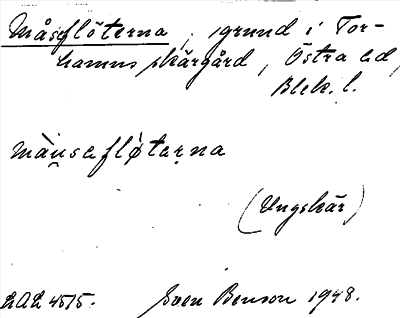 Måsflöterna, grund i Tor-
hamns skärgård, Östra hd,
Blek. l.
màu̯saflǿtaṛna
(Ungskär)
LAL 4515. Sven Benson 1948.